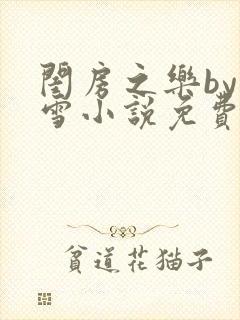 閨房之樂by
雪小說免費
貧道花猫子